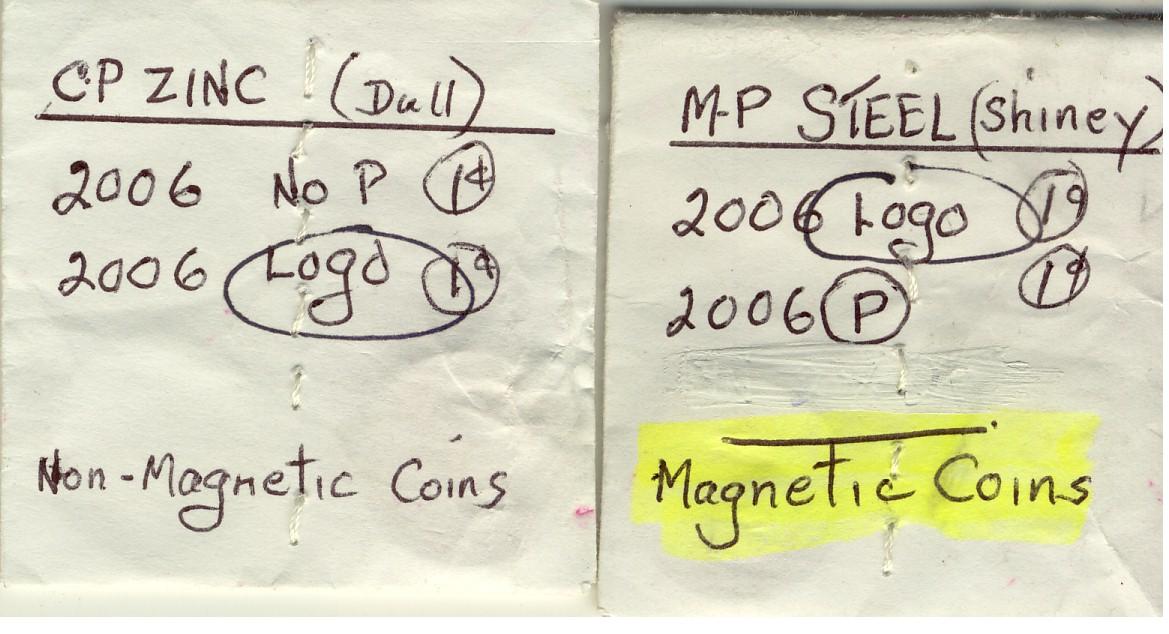 CP ZINC (Dull)
2006 No P 1¢
2006 Logo 1¢
Non-Magnetic Coins
M-P STEEL (Shiney)
2006 Logo 1¢
2006 P 1¢
Magnetic Coins